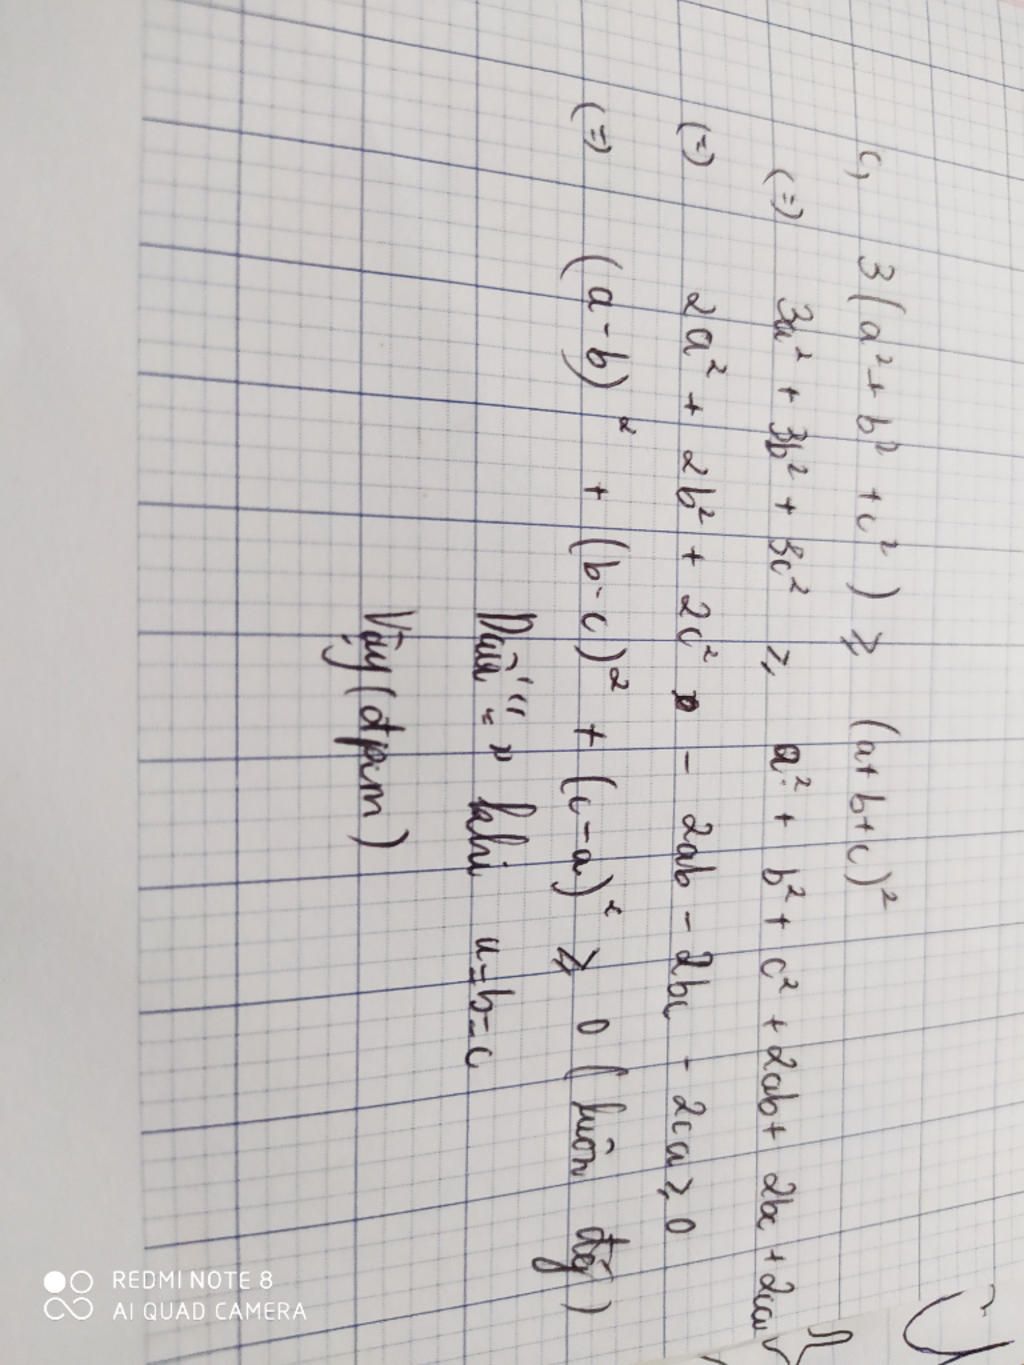 c, 3(a² + b² + c²) ≥ (a+b+c)²
(=) 3a² + 3b² + 3c² ≥ a² + b² + c² + 2ab + 2bc + 2ca
(=) 2a² + 2b² + 2c² - 2ab - 2bc - 2ca ≥ 0
(=) (a-b)² + (b-c)² + (c-a)² ≥ 0 (luôn đg)
Dấu "=" khi a=b=c
Vậy (đpcm)
REDMI NOTE 8
AI QUAD CAMERA